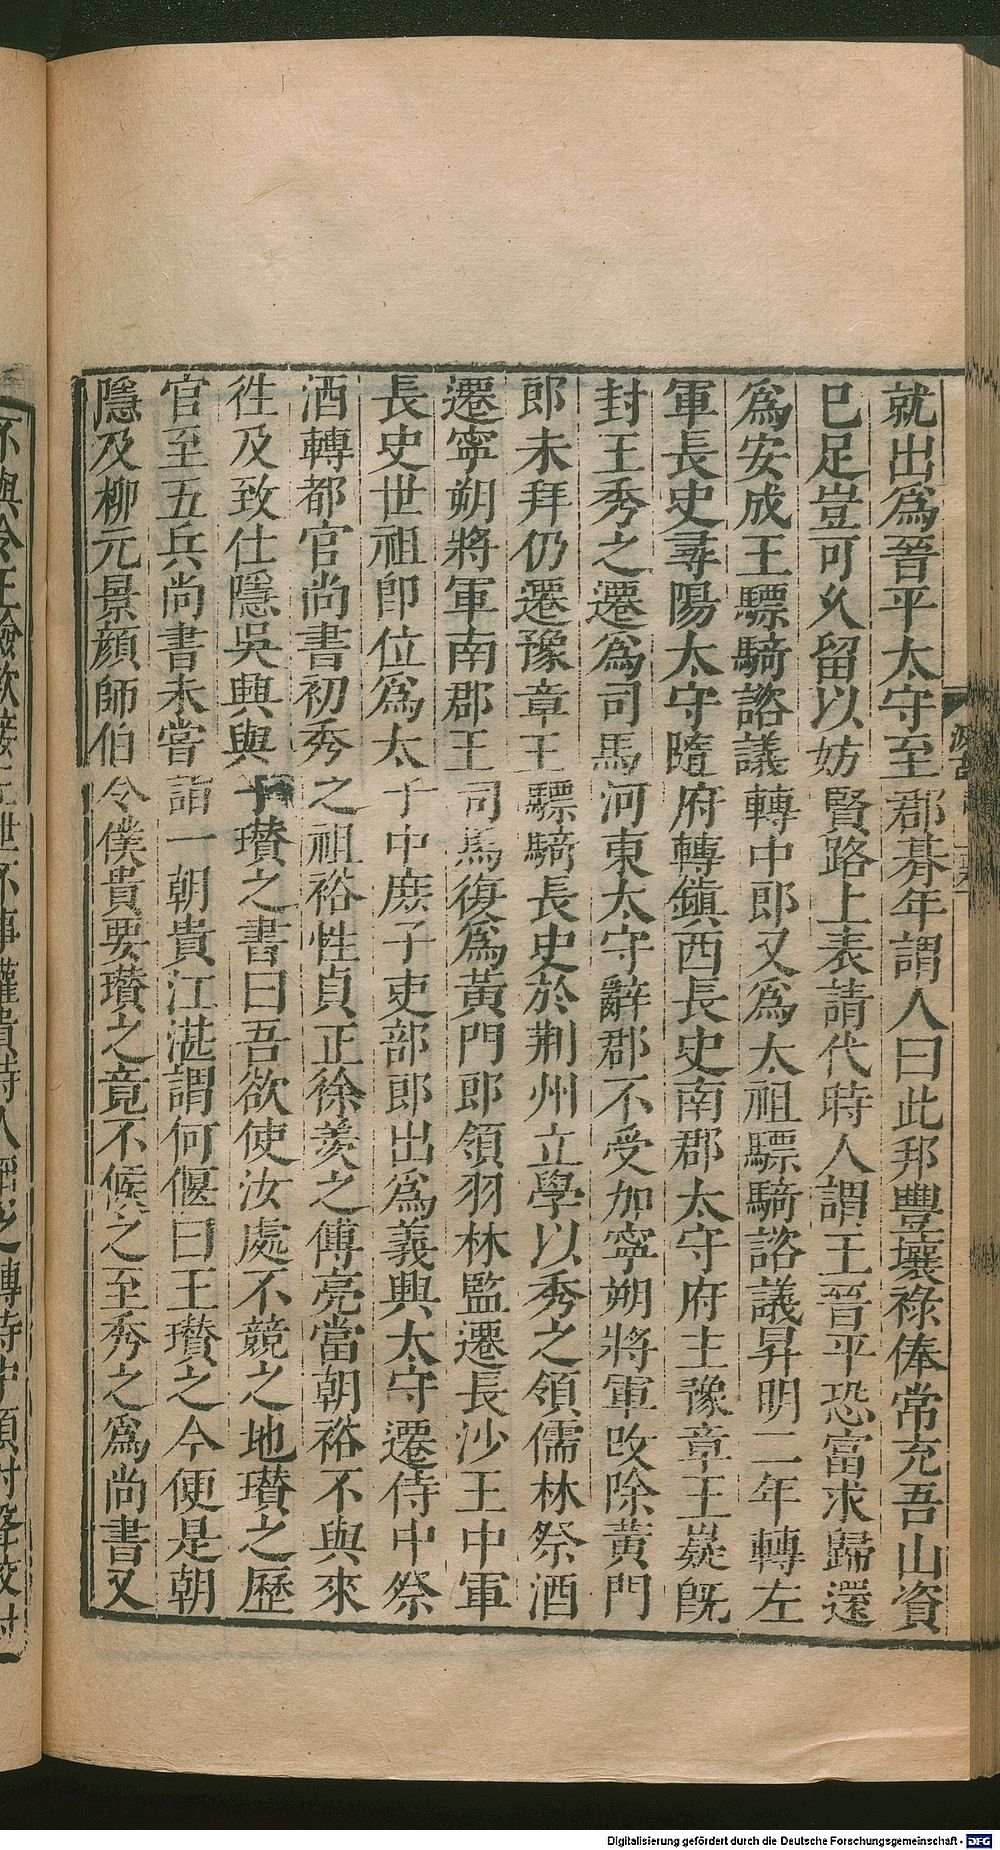 就出爲晉平太守至郡朞年謂人曰此邦豐壤祿俸常充吾山資
已足豈可久留以妨賢路上表請代時人謂王晉平恐富求歸還
爲安成王驃騎諮議轉中郎又爲太祖驃騎諮議昇明二年轉左
軍長史尋陽太守隨府轉鎭西長史南郡太守府主豫章王嶷旣
封王秀之遷爲司馬河東太守辭郡不受加寧朔將軍改除黃門
郎未拜仍遷豫章王驃騎長史於荆州立學以秀之領儒林祭酒
遷寧朔將軍南郡王司馬復爲黃門郎領羽林監遷長沙王中軍
長史世祖卽位爲太子中庶子吏部郎出爲義興太守遷侍中祭
酒轉都官尚書初秀之祖裕性貞正徐羨之傅亮當朝裕不與來
徃及致仕隱吳興與子瓚之書曰吾欲使汝處不競之地瓚之歷
官至五兵尚書未嘗詣一朝貴江湛謂何偃曰王瓚之今便是朝
隱及柳元景顏師伯令僕貴要瓚之竟不候之至秀之爲尚書又
不與令王儉款接三世不事權貴時人稱之轉侍中領射聲校尉
Digitalisierung gefördert durch die Deutsche Forschungsgemeinschaft - DFG